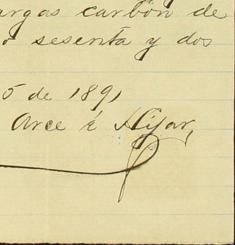 argas carbón de
o sesenta y dos
5 de 1891
Arce é Hijar,